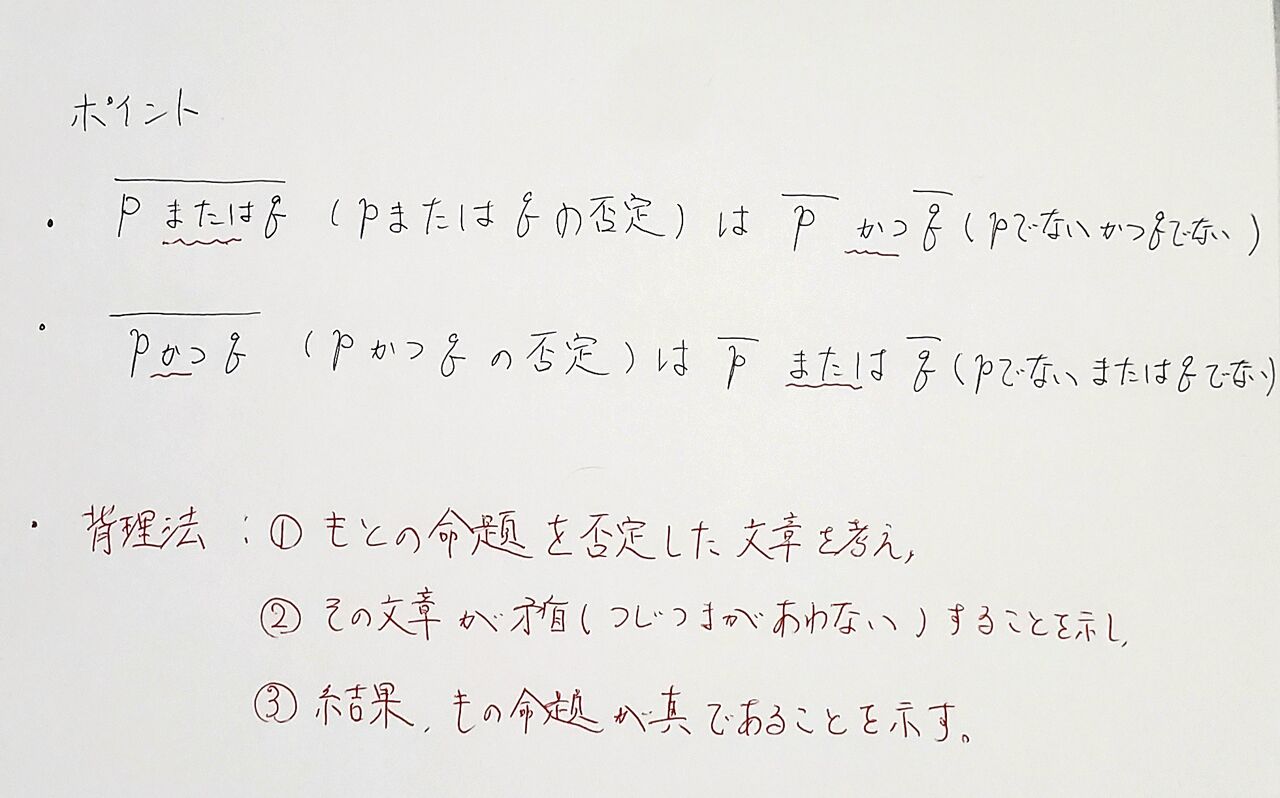 ポイント
・ p または q (p または q の否定) は p かつ q (p でない かつ q でない)
・ p かつ q (p かつ q の否定) は p または q (p でない または q でない)
・ 背理法 : ① もとの命題を否定した文章を考え,
② その文章が矛盾(つじつまがあわない)することを示し,
③ 結果, もの命題が真であることを示す。